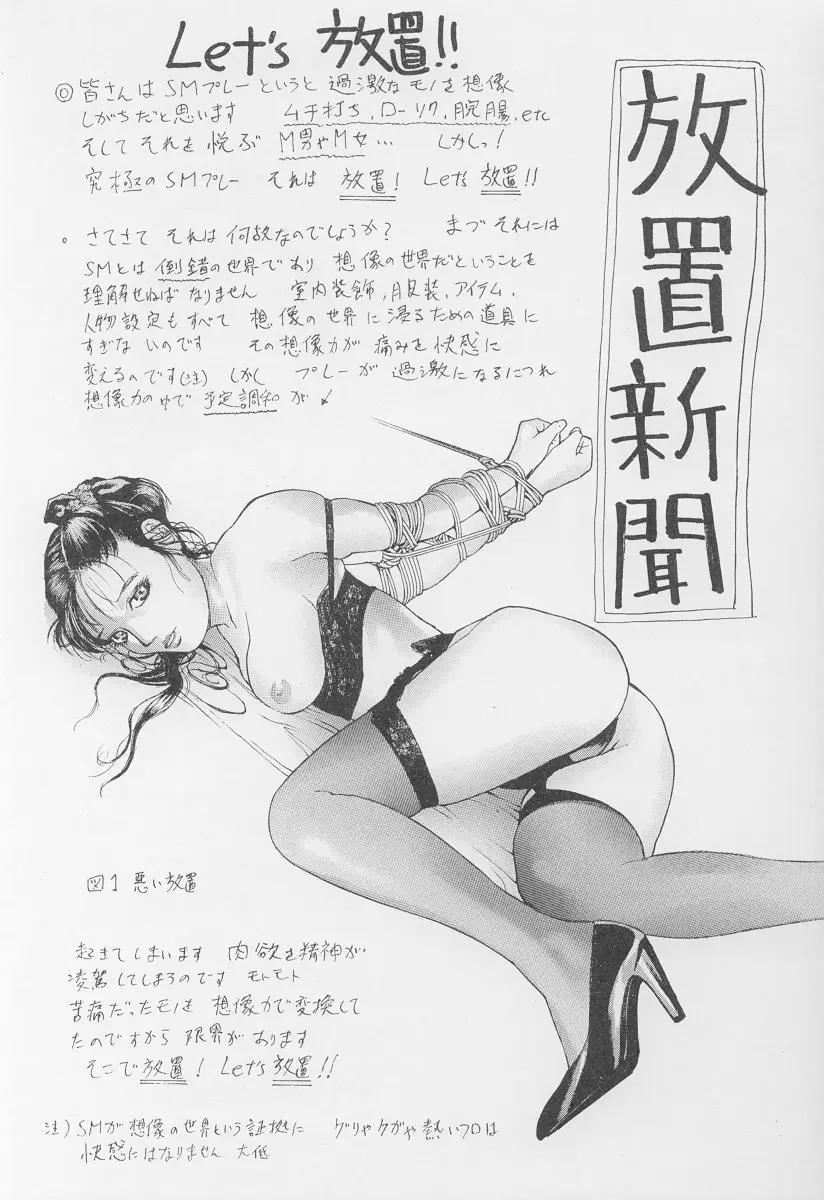 Let's 放置!!
放置新聞
◎ 皆さんは SMプレーというと 過激なモノを想像
しがちだと思います ムチ打ち, ローソク, 浣腸, etc
そして それを 悦ぶ M男やM女… しかしっ!
究極のSMプレー それは 放置! Let's 放置!!
。さてさて それは 何故なのでしょうか? まづ それには
SMとは 倒錯の世界であり 想像の世界だということを
理解せねば なりません 室内装飾, 服装, アイテム,
人物設定も すべて 想像の世界に浸るための道具に
すぎないのです その想像力が 痛みを快感に
変えるのです(注) しかし プレーが 過激になるにつれ
想像力の中で 予定調和が
図1 悪い放置
起きてしまいます 肉欲を精神が
凌駕してしまうのです モトモト
苦痛だったモノを 想像力で変換して
たのですから 限界があります
そこで 放置! Let's 放置!!
注) SMが想像の世界という証拠に ゲリやケガや熱いフロは
快感にはなりません 大低